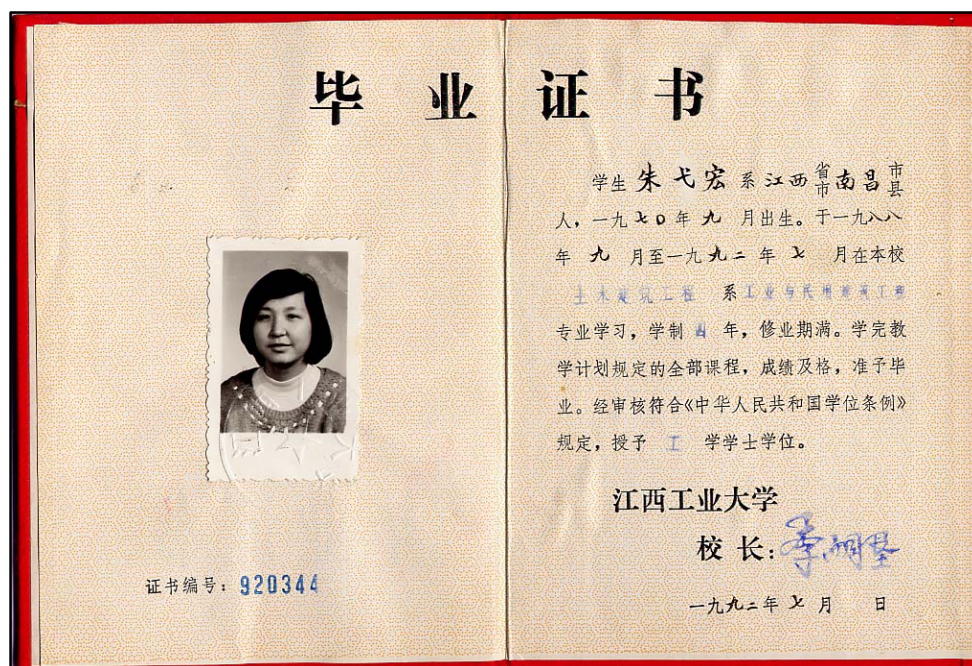 毕业证书
学生 朱弋宏 系江西省市南昌市县
人，一九七0年九月出生。于一九八八
年九月至一九九二年七月在本校
土木建筑工程系工业与民用建筑工程
专业学习，学制四年，修业期满。学完教
学计划规定的全部课程，成绩及格，准予毕
业。经审核符合《中华人民共和国学位条例》
规定，授予工学学士学位。
江西工业大学
校长：
一九九二年七月 日
证书编号：920344